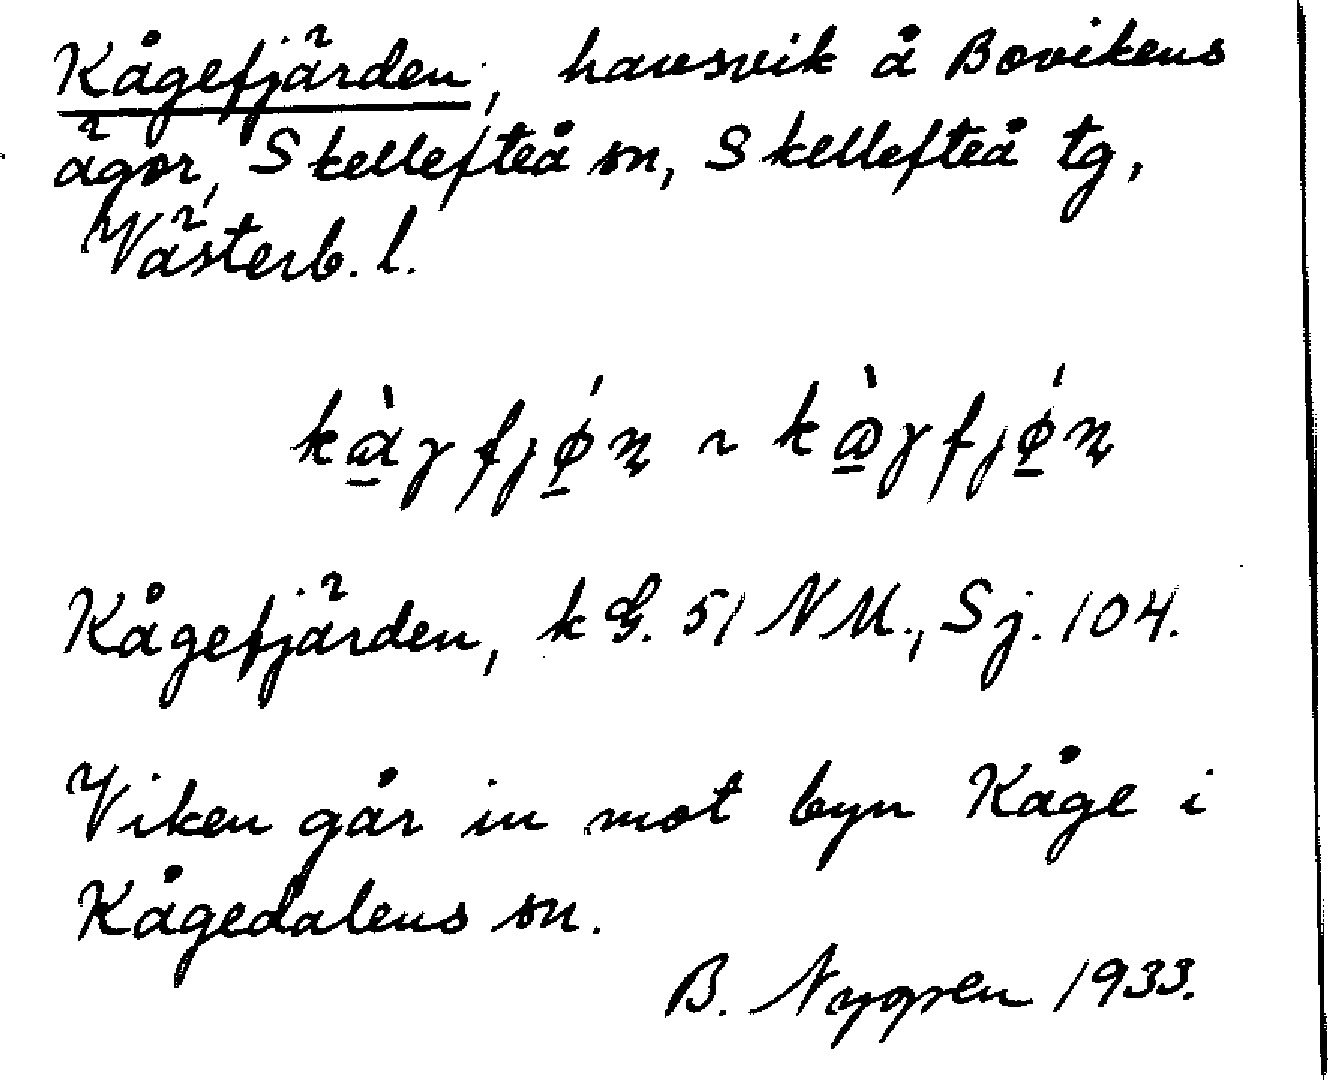 Kågefjärden, havsvik å Bovikens
ägor, Skellefteå sn, Skellefteå tg,
Västerb. l.
kɑ̱̀γfjǿ̱n̥ ~ kɑ̱̀γfjǿ̱n̥
Kågefjärden, kG. 51 NM., Sj. 104.
Viken går in mot byn Kåge i
Kågedalens sn.
B. Nygren 1933.